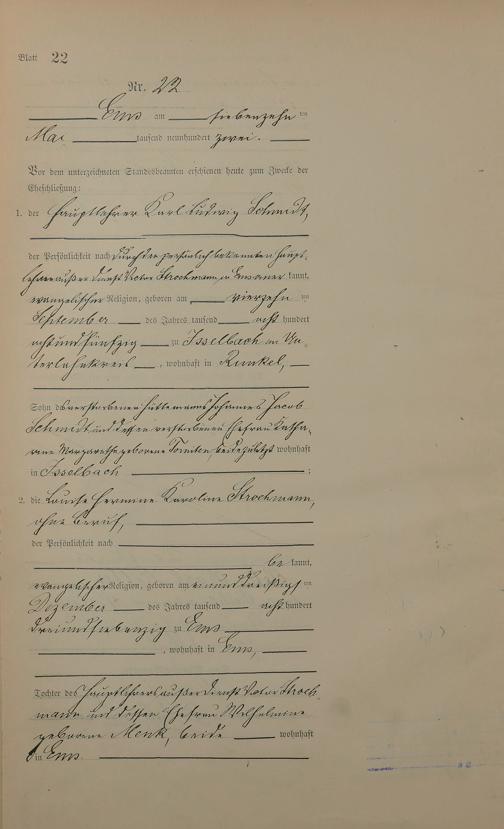 Blatt 22
Nr. 22
Ems am siebenzehn ten
Mai tausend neunhundert zwei.
Vor dem unterzeichneten Standesbeamten erschienen heute zum Zwecke der
Eheschließung:
1. der Hauptlehrer Karl Ludwig Schmidt,
der Persönlichkeit nach durch den persönlich bekannten Haupt-
lehrer außer Dienst Victor Strochmann in Ems aner kannt,
evangelischer Religion, geboren am vierzehn ten
September des Jahres tausend acht hundert
achtundfünfzig zu Isselbach im Un-
terlahnkreis, wohnhaft in Runkel,
Sohn des verstorbenen Hüttenmanns Johannes Jacob
Schmidt und dessen verstorbenen Ehefrau Katha-
rine Margarethe geborene beide zuletzt wohnhaft
in Isselbach ;
2. die Louise Hermine Karoline Strochmann,
ohne Beruf,
der Persönlichkeit nach
be kannt,
evangelischer Religion, geboren am einunddreißigs ten
Dezember des Jahres tausend acht hundert
dreiundsiebenzig zu Ems
, wohnhaft in Ems,
Tochter des Hauptlehrers außer Dienst Victor Stroch-
mann und dessen Ehefrau Wilhelmine
geborene Menk, beide wohnhaft
in Ems.